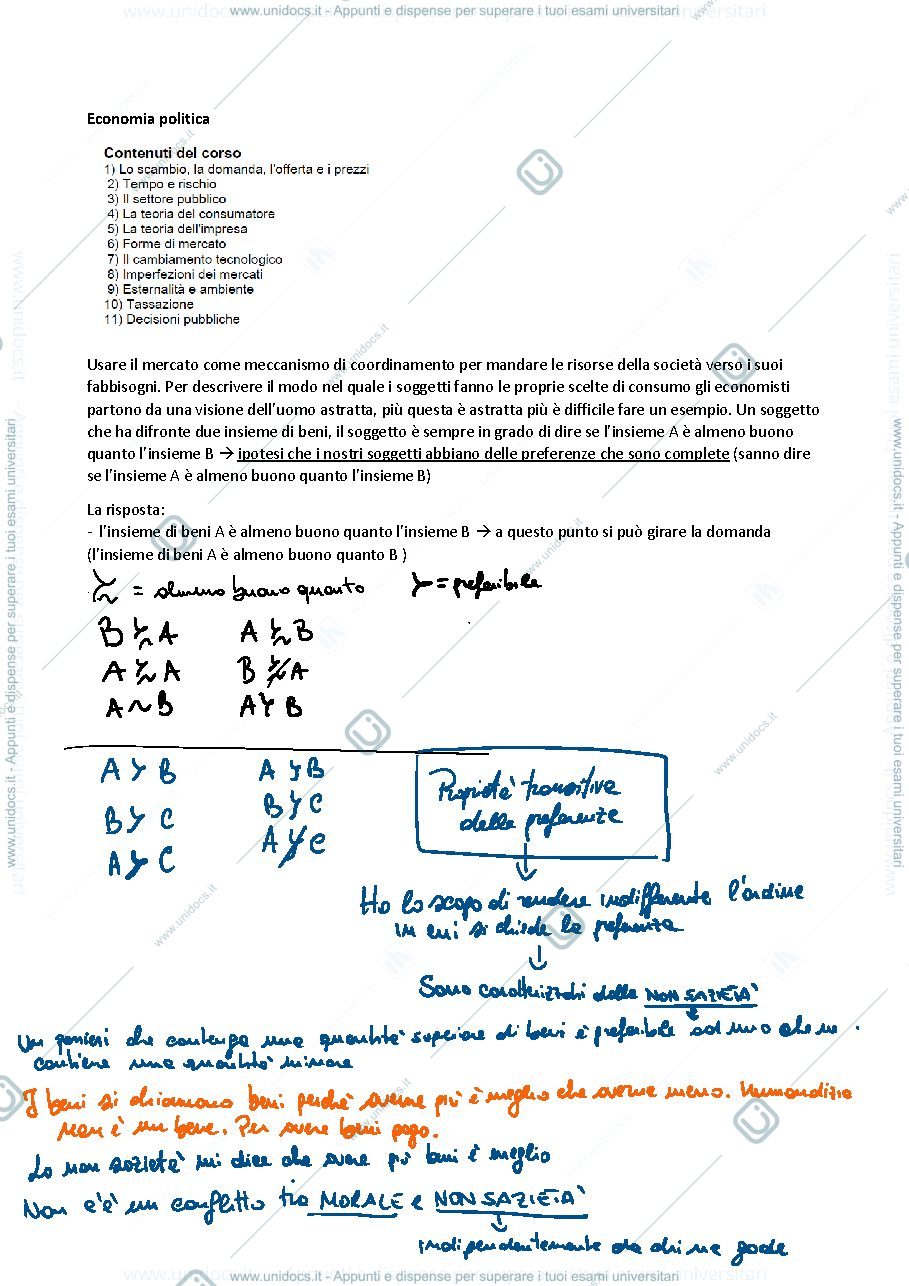 www.unidocs.it - Appunti e dispense per superare i tuoi esami universitari
Economia politica
Contenuti del corso
1) Lo scambio, la domanda, l'offerta e i prezzi
2) Tempo e rischio
3) Il settore pubblico
4) La teoria del consumatore
5) La teoria dell'impresa
6) Forme di mercato
7) Il cambiamento tecnologico
8) Imperfezioni dei mercati
9) Esternalità e ambiente
10) Tassazione
11) Decisioni pubbliche
Usare il mercato come meccanismo di coordinamento per mandare le risorse della società verso i suoi
fabbisogni. Per descrivere il modo nel quale i soggetti fanno le proprie scelte di consumo gli economisti
partono da una visione dell'uomo astratta, più questa è astratta più è difficile fare un esempio. Un soggetto
che ha difronte due insieme di beni, il soggetto è sempre in grado di dire se l'insieme A è almeno buono
quanto l'insieme B → ipotesi che i nostri soggetti abbiano delle preferenze che sono complete (sanno dire
se l'insieme A è almeno buono quanto l'insieme B)
La risposta:
- l'insieme di beni A è almeno buono quanto l'insieme B → a questo punto si può girare la domanda
(l'insieme di beni A è almeno buono quanto B )
≿ = almeno buono quanto ≻ = preferibile
B ≿ A A ≿ B
A ≿ A B ⋡ A
A ~ B A ≻ B
A ≻ B A ≻ B
B ≻ C B ≻ C
A ≻ C A ⊁ C
Propietà transitiva
delle preferenze
Ha lo scopo di rendere indifferente l'ordine
in cui si chiede la preferenza
Sono caratterizzati dalla NON SAZIETA'
Un panieri che contenga una quantità superiore di beni è preferibile ad uno che ne
contiene una quantità minore
I beni si chiamano beni perché averne più è meglio che averne meno. L'immondizia
non è un bene. Per avere beni pago.
La non sazietà mi dice che avere più beni è meglio
Non c'è un conflitto tra MORALE e NON SAZIETA'
indipendentemente da chi ne gode
www.unidocs.it - Appunti e dispense per superare i tuoi esami universitari